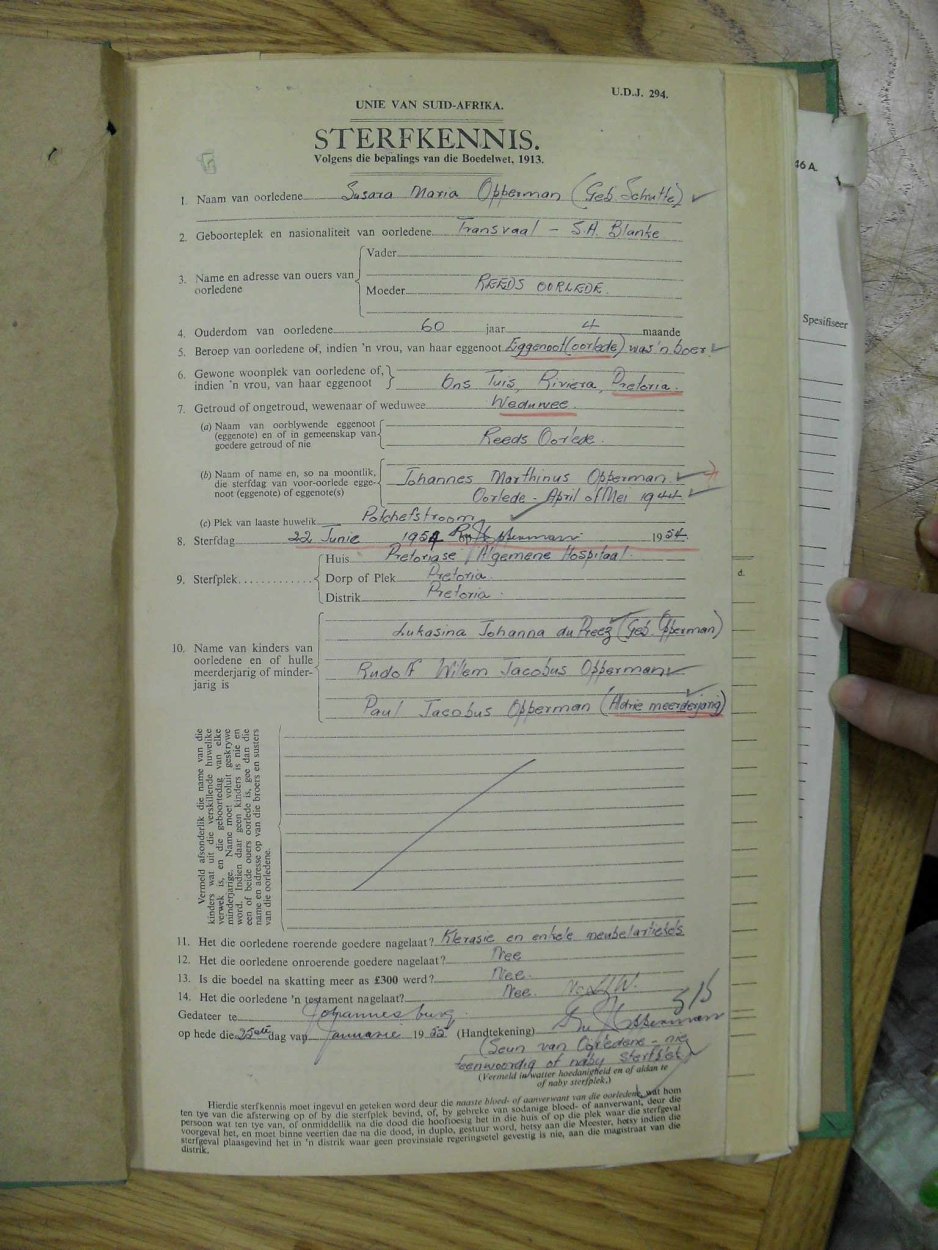 U.D.J. 294.
UNIE VAN SUID-AFRIKA.
STERFKENNIS.
Volgens die bepalings van die Boedelwet, 1913.
46 A.
1. Naam van oorledene Susara Maria Opperman (Geb Schutte)
2. Geboorteplek en nasionaliteit van oorledene Transvaal - S.A. Blanke
3. Name en adresse van ouers van oorledene
Vader
Moeder REEDS OORLEDE.
Spesifiseer
4. Ouderdom van oorledene 60 jaar 4 maande
5. Beroep van oorledene of, indien 'n vrou, van haar eggenoot Eggenoot (oorlede) was 'n boer
6. Gewone woonplek van oorledene of, indien 'n vrou, van haar eggenoot } Ons Tuis, Riviera, Pretoria.
7. Getroud of ongetroud, wewenaar of weduwee Weduwee.
(a) Naam van oorblywende eggenoot (eggenote) en of in gemeenskap van goedere getroud of nie Reeds Oorlede.
(b) Naam of name en, so na moontlik, die sterfdag van voor-oorlede eggenoot (eggenote) of eggenote(s)
Johannes Marthinus Opperman
Oorlede - April of Mei 1944
(c) Plek van laaste huwelik Potchefstroom
8. Sterfdag 22 Junie 1954 1954
9. Sterfplek
Huis Pretoriase Algemene Hospitaal.
Dorp of Plek Pretoria
d.
Distrik Pretoria.
10. Name van kinders van oorledene en of hulle meerderjarig of minderjarig is
Lukasina Johanna du Preez (Geb. Opperman)
Rudolf Willem Jacobus Opperman
Paul Jacobus Opperman (Aldrie meerderjarig)
Vermeld afsonderlik die name van die
kinders wat uit die verskillende huwelike
verwek is, en die geboortedag van elke
minderjarige. Name moet voluit geskrywe
word. Indien daar geen kinders is nie en
een of beide ouers oorlede is, gee dan die
name en adresse op van die broers en susters
van die oorledene.
11. Het die oorledene roerende goedere nagelaat? Klerasie en enkele meubelartiekels
12. Het die oorledene onroerende goedere nagelaat? Nee
13. Is die boedel na skatting meer as £300 werd? Nee.
14. Het die oorledene 'n testament nagelaat? Nee.
Gedateer te Johannesburg
op hede die 25ste dag van Januarie 1955 (Handtekening) Opperman
(Seun van Oorledene - nie
teenwoordig of naby sterfplek)
(Vermeld in watter hoedanigheid en of aldan te
of naby sterfplek.)
Hierdie sterfkennis moet ingevul en geteken word deur die naaste bloed- of aanverwant van die oorledene, wat hom
ten tye van die afsterwing op of by die sterfplek bevind, of, by gebreke van sodanige bloed- of aanverwant, deur die
persoon wat ten tye van, of onmiddellik na die dood die hooftoesig het in die huis of op die plek waar die sterfgeval
voorgeval het, en moet binne veertien dae na die dood, in duplo, gestuur word, hetsy aan die Meester, hetsy indien die
sterfgeval plaasgevind het in 'n distrik waar geen provinsiale regeringsetel gevestig is nie, aan die magistraat van die
distrik.